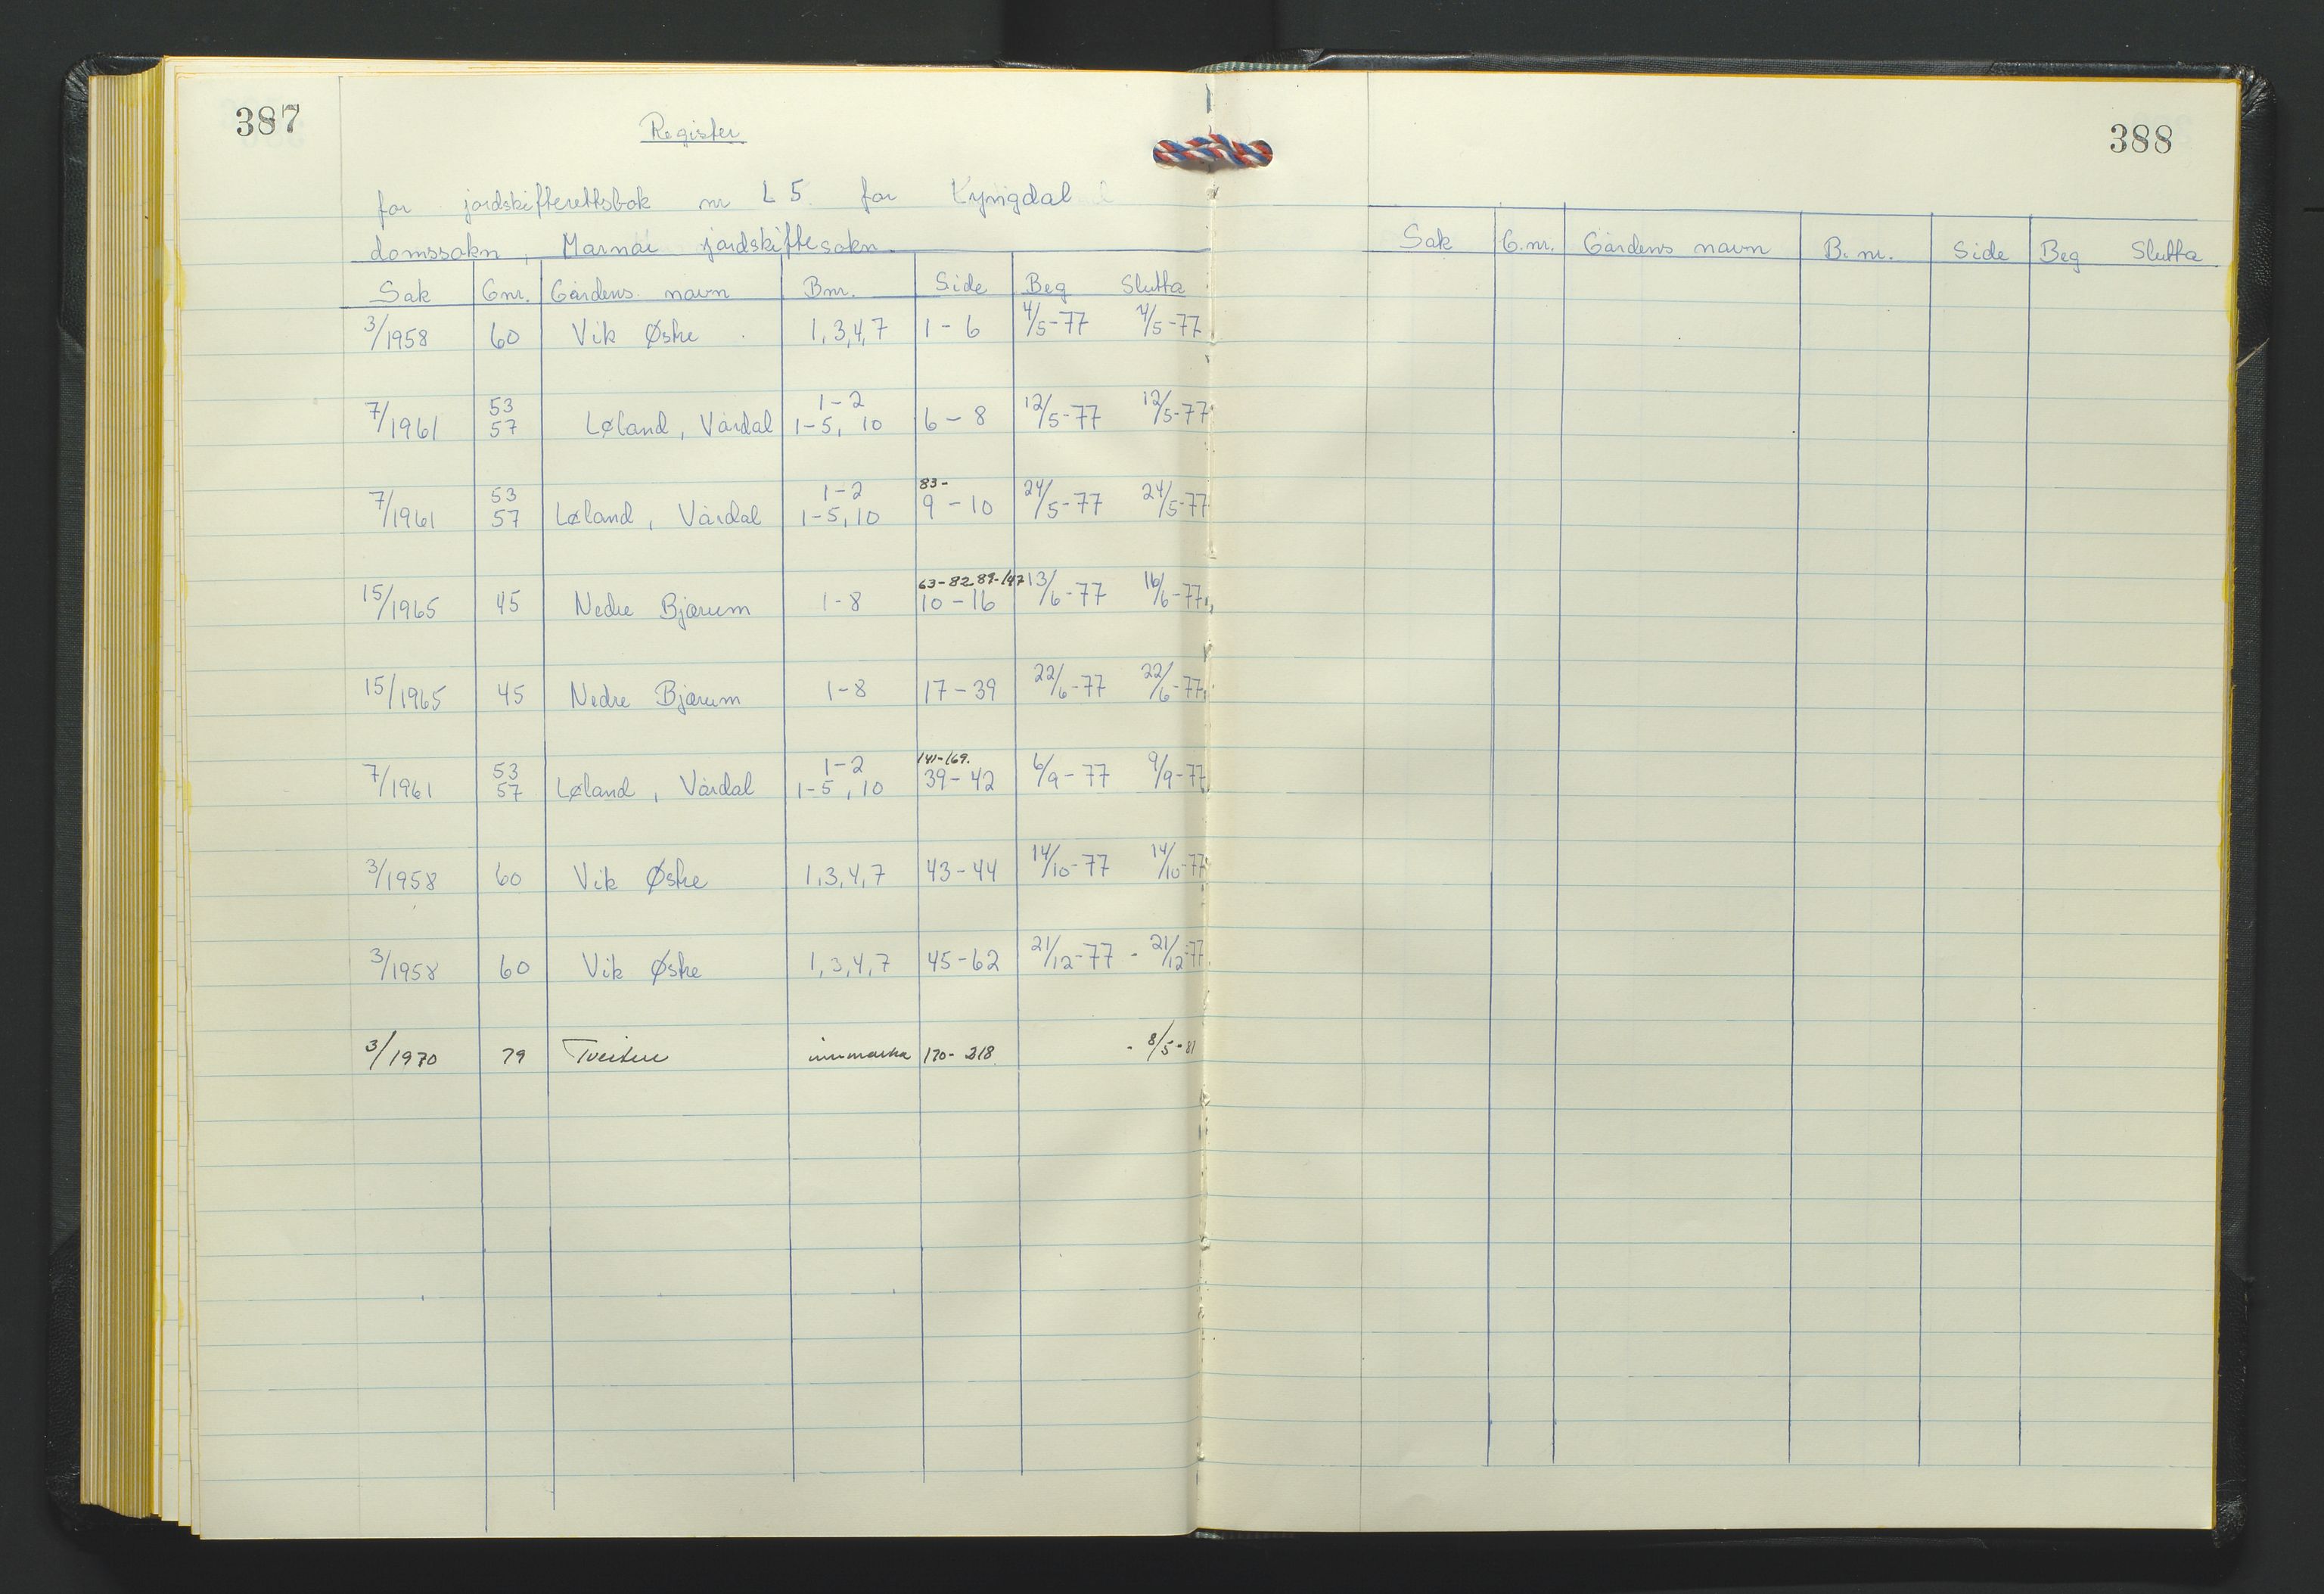 387
Register
for jordskifterettsbok nr L 5 for Lyngdal
domssokn, Marnar jordskiftesokn.
Sak Gnr. Gårdens navn Bnr. Side Beg Slutta
3/1958 60 Vik Østre 1, 3, 4, 7 1 - 6 4/5-77 4/5-77
53 1-2
7/1961 57 Løland, Vårdal 1-5, 10 6 - 8 12/5-77 12/5-77
53 1-2 83-
7/1961 57 Løland, Vårdal 1-5, 10 9 - 10 24/5-77 24/5-77
63-82 89-147
15/1965 45 Nedre Bjærum 1-8 10 - 16 13/6-77 16/6-77
15/1965 45 Nedre Bjærum 1-8 17 - 39 22/6-77 22/6-77
53 1-2 141-169.
7/1961 57 Løland, Vårdal 1-5, 10 39 - 42 6/9-77 9/9-77
3/1958 60 Vik Østre 1, 3, 4, 7 43 - 44 14/10-77 14/10-77
3/1958 60 Vik Østre 1, 3, 4, 7 45 - 62 21/12-77 - 21/12-77
3/1970 79 Tveiten innmarka 170- 218 - 8/5-81
388
Sak G.nr. Gårdens navn B.nr. Side Beg Slutta